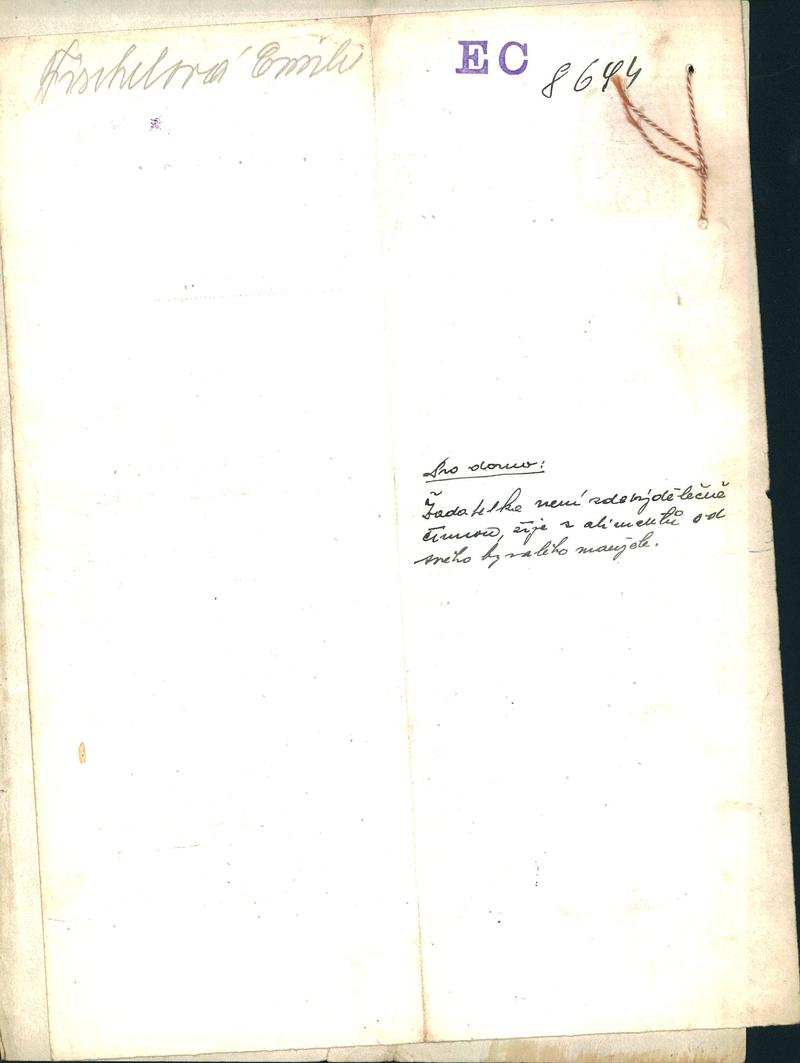 Fischelová Emilie
EC 8644
Pro domo:
Žadatelka není zde výdělečně
činnou, žije z alimentů od
svého bývalého manžela.